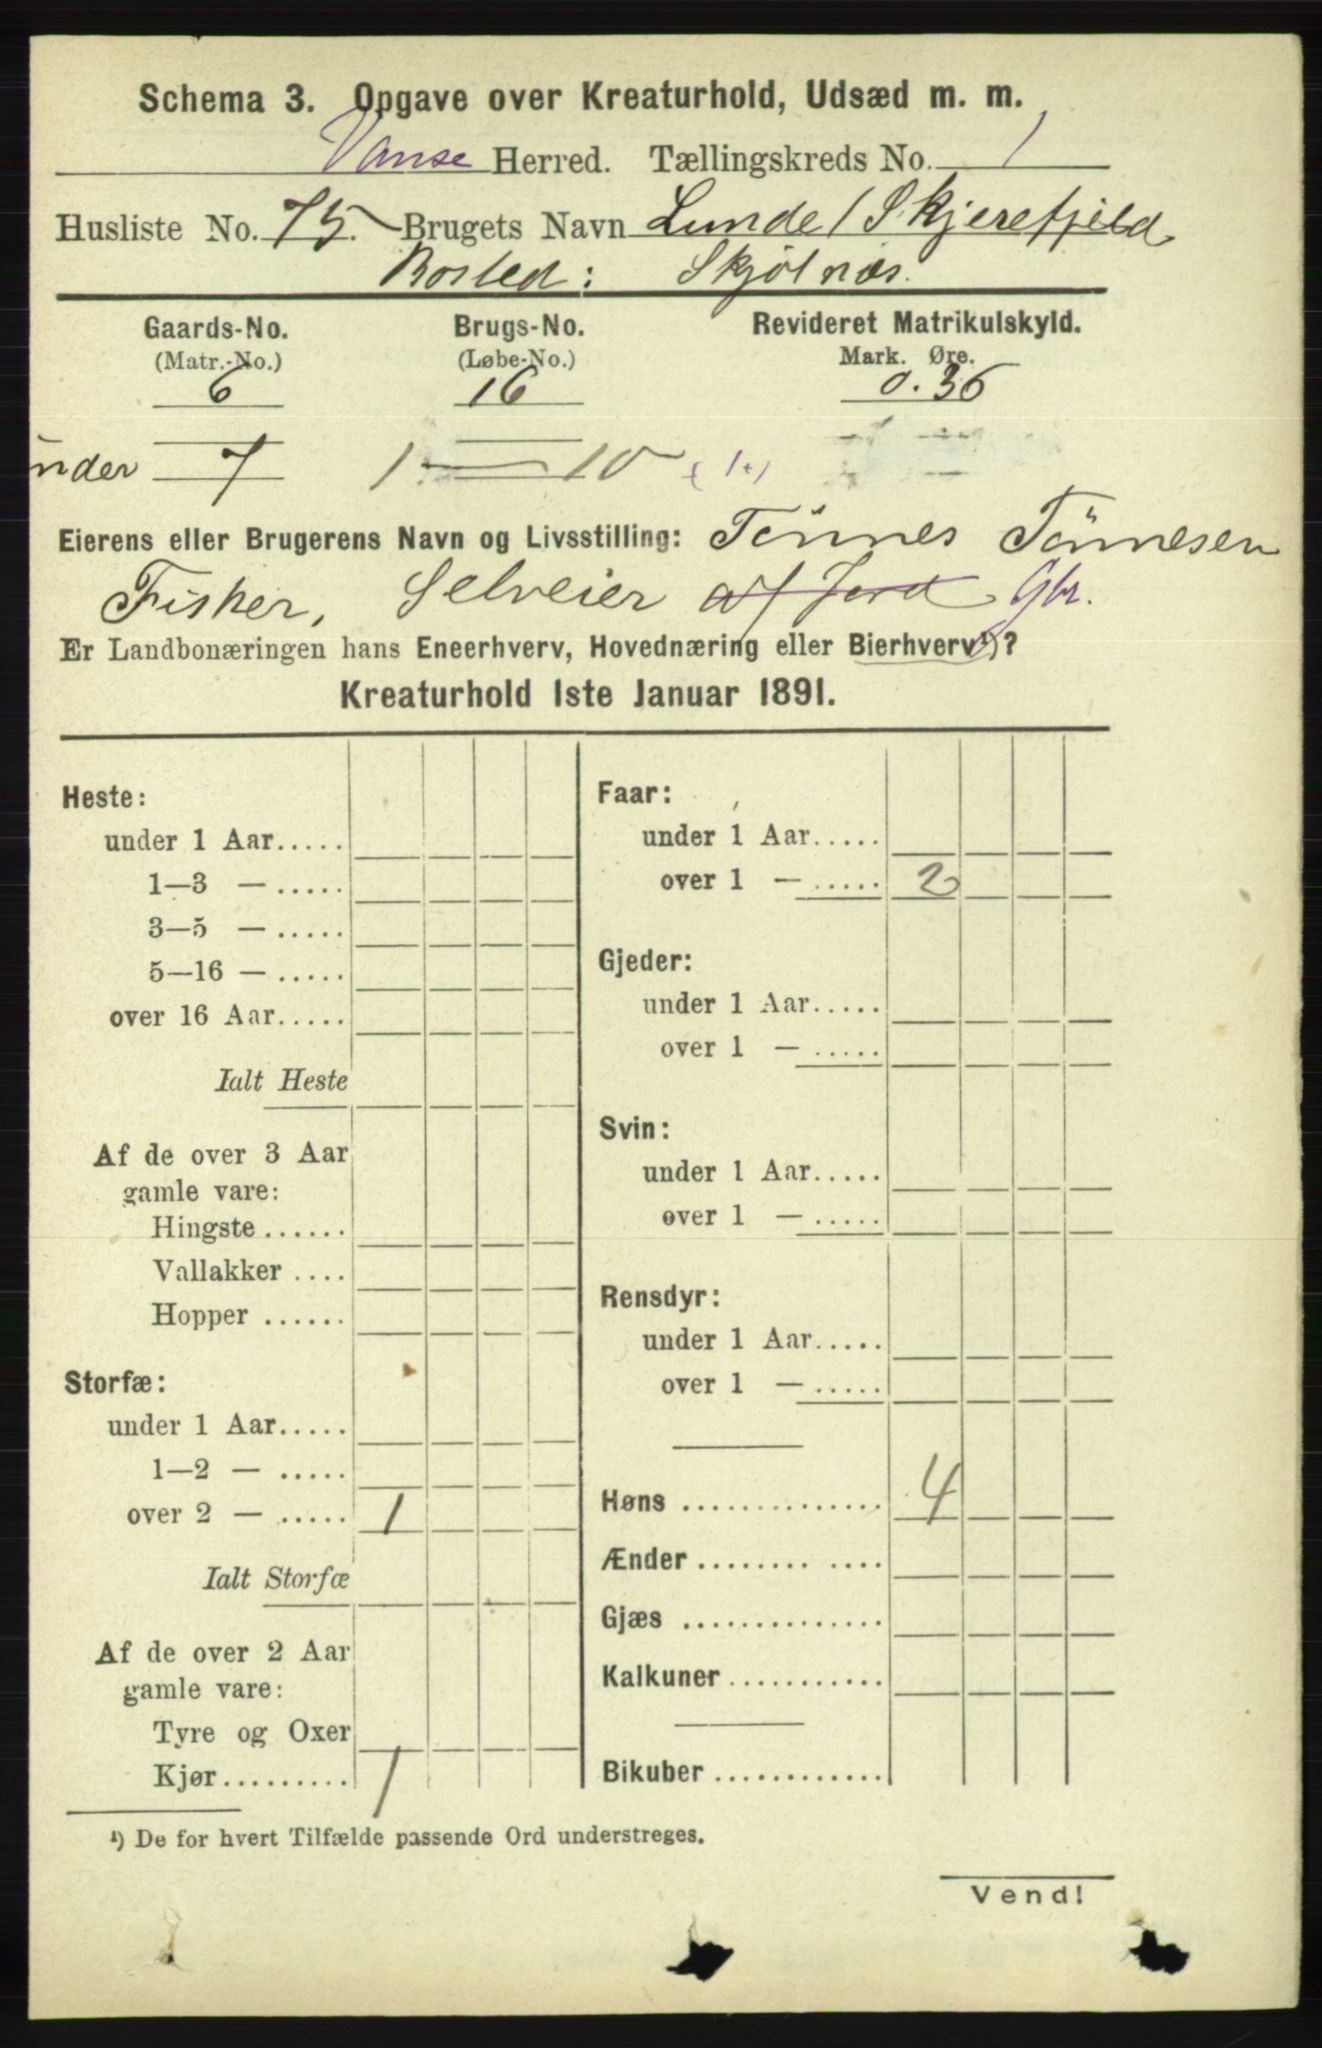 Schema 3. Opgave over Kreaturhold, Udsæd m. m.
Vanse Herred. Tællingskreds No. 1
Husliste No. 75. Brugets Navn Lunde / Skjerefjeld
Bosted: Skjölnæs.
Gaards-No. Brugs-No. Revideret Matrikulskyld.
(Matr.-No.) (Løbe-No.) Mark. Øre.
6 16 0.36
under 7 1 — 10 (1+)
Eierens eller Brugerens Navn og Livsstilling: Tönnes Tönnesen
Fisker, Selveier af Jord Gbr.
Er Landbonæringen hans Eneerhverv, Hovednæring eller Bierhverv¹)?
Kreaturhold 1ste Januar 1891.
Heste:
under 1 Aar.....
1—3 — .....
3—5 — .....
5—16 — .....
over 16 Aar.....
Ialt Heste
Af de over 3 Aar
gamle vare:
Hingste ......
Vallakker ....
Hopper ......
Storfæ:
under 1 Aar.....
1—2 — .....
over 2 — ..... 1
Ialt Storfæ
Af de over 2 Aar
gamle vare:
Tyre og Oxer
Kjør......... 1
Faar:
under 1 Aar.....
over 1 — ..... 2
Gjeder:
under 1 Aar.....
over 1 — .....
Svin:
under 1 Aar.....
over 1 — .....
Rensdyr:
under 1 Aar.....
over 1 — .....
Høns .............. 4
Ænder ........ ....
Gjæs ..............
Kalkuner ...........
Bikuber .............
¹) De for hvert Tilfælde passende Ord understreges.
Vend!